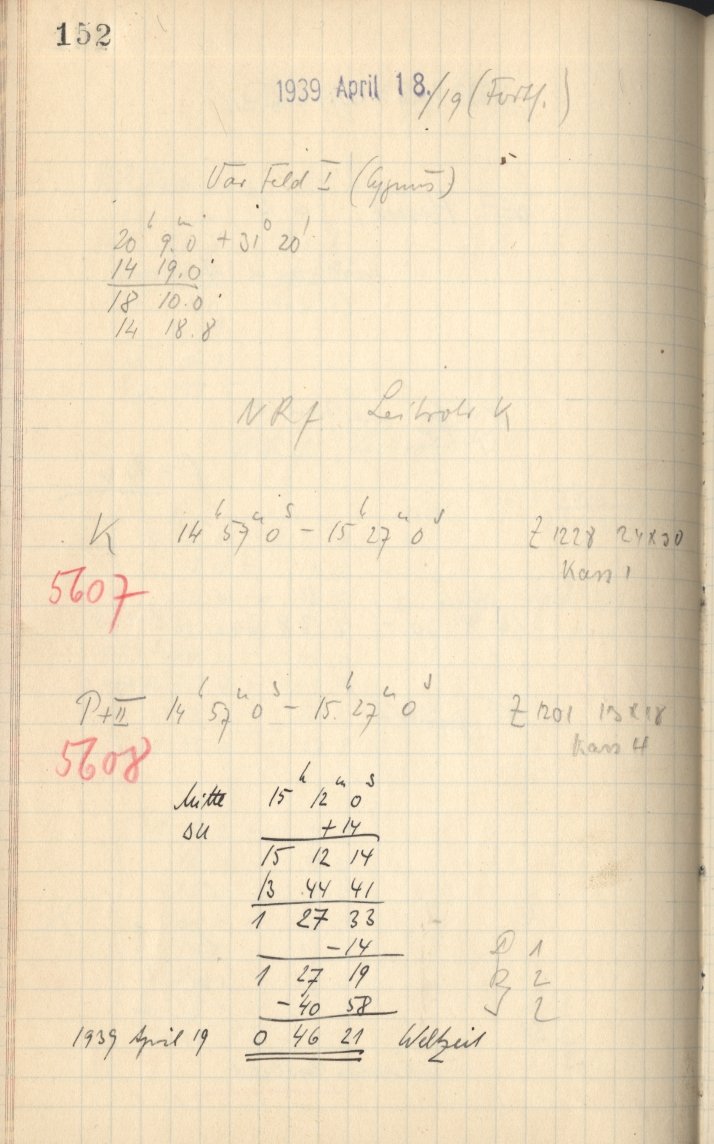 152
1939 April 18./19 (Fortf.)
Var Feld I (Cygnus)
20ʰ 9.ᵐ0 +31° 20'
14 19.0
18 10.0
14 18.8
NRf Leitrohr K
K 14ʰ 57ᵐ 0ˢ – 15ʰ 27ᵐ 0ˢ Z 1228 24x30
Kass 1
5607
P+II 14ʰ 57ᵐ 0ˢ – 15ʰ 27ᵐ 0ˢ Z 1201 13x18
Kass 4
5608
Mitte 15ʰ 12ᵐ 0ˢ
SU +14
15 12 14
13 44 41
1 27 33
–14
D 1
1 27 19
2
–40 58
2
1939 April 19 0 46 21 Weltzeit